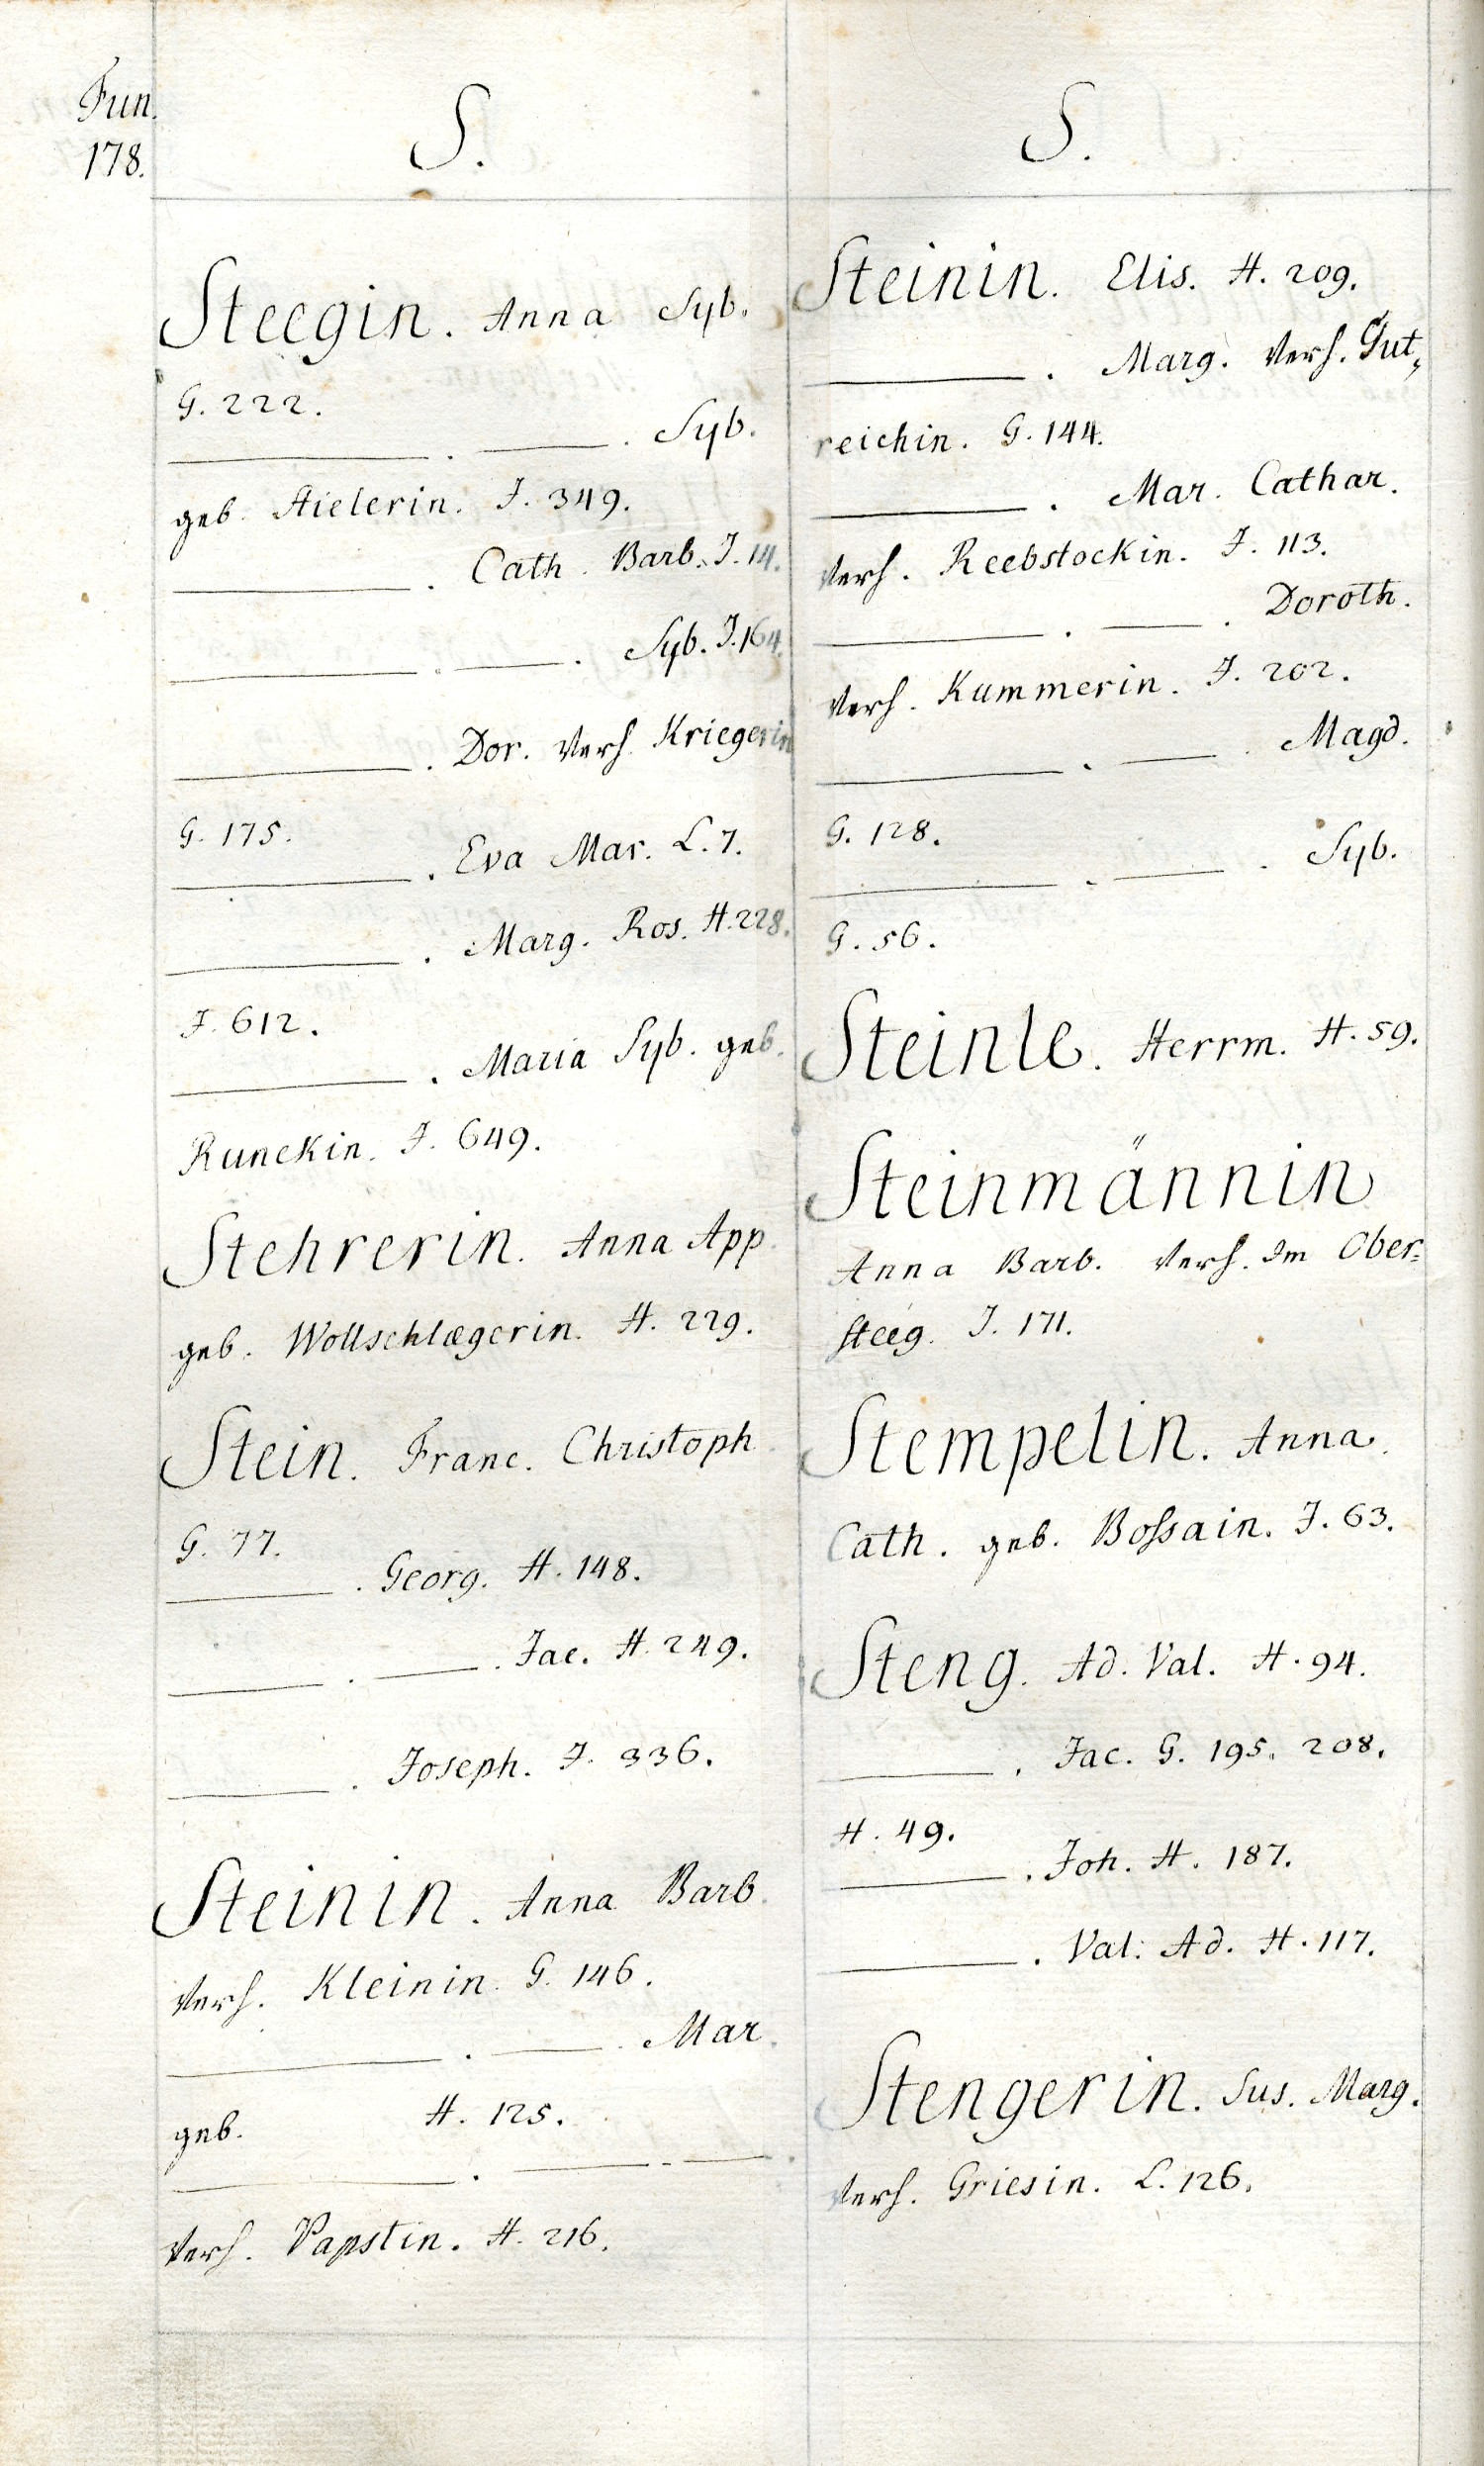 Fun.
178.
S.
Steegin. Anna Syb.
G. 222.
———. ———. Syb.
geb. Hielerin. J. 349.
———. Cath. Barb. J. 14.
———. ———. Syb. J. 164.
———. Dor. Verh. Kriegerin
G. 175.
———. Eva Mar. L. 7.
———. Marg. Ros. H. 228.
J. 612.
———. Maria Syb. geb.
Runckin. J. 649.
Stehrerin. Anna App.
geb. Wollschlægerin. H. 229.
Stein. Franc. Christoph.
G. 77.
———. Georg. H. 148.
———. ———. Jac. H. 249.
———. Joseph. J. 336.
Steinin. Anna Barb.
Verh. Kleinin. G. 146.
———. ———. Mar.
geb. H. 125.
———. ———-———.
Verh. Papstin. H. 216.
S.
Steinin. Elis. H. 209.
———. Marg. Verh. Gut,
reichin. G. 144.
———. Mar. Cathar.
Verh. Reebstockin. J. 113.
———. ———. Doroth.
Verh. Kummerin. J. 202.
———. ———. Magd.
G. 128.
———. ———. Syb.
G. 56.
Steinle. Herrm. H. 59.
Steinmännin
Anna Barb. Verh. Im Ober-
steeg. J. 171.
Stempelin. Anna.
Cath. geb. Boſsain. J. 63.
Steng. Ad. Val. H. 94.
———. Jac. G. 195. 208.
H. 49.
———. Joh. H. 187.
———. Val. Ad. H. 117.
Stengerin. Sus. Marg.
Verh. Griesin. L. 126.